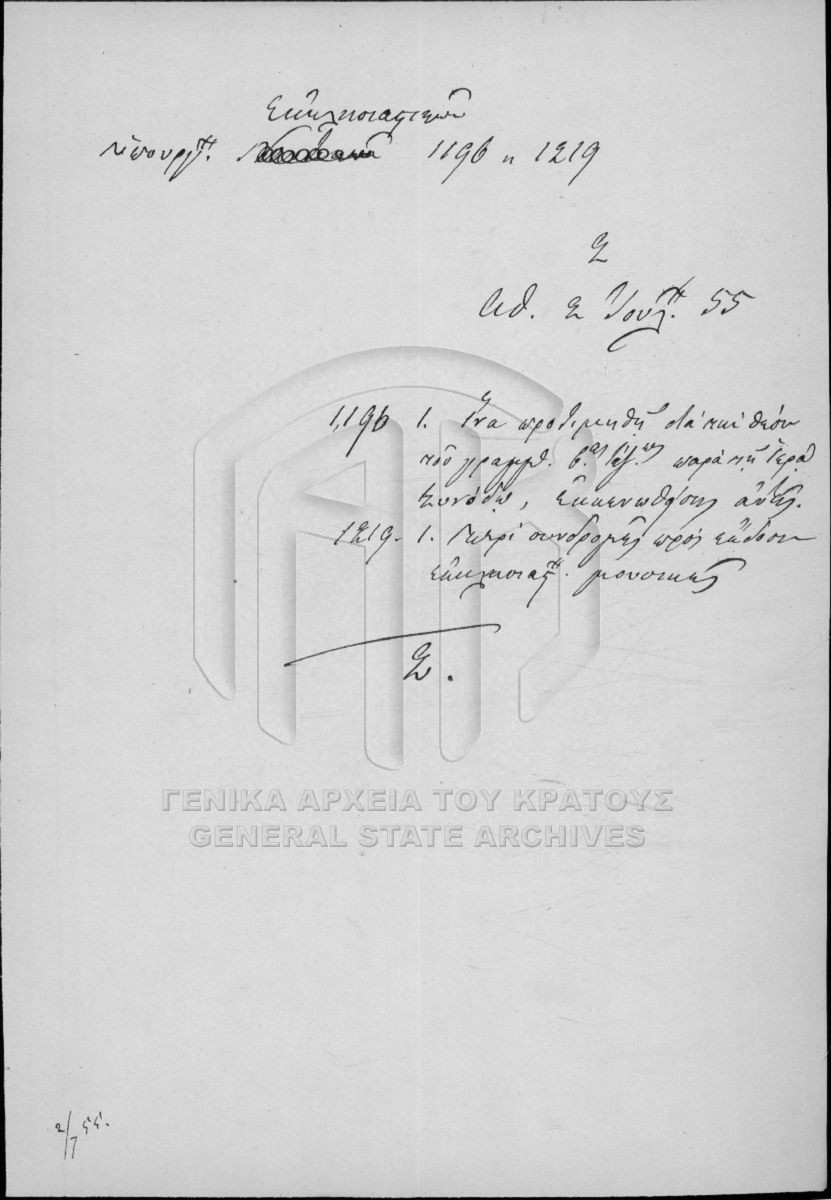 Εκκλησιαστικων
Υπουργ. 1196 κ 1219
2
Αθ. 2 Ιουλ. 55
1,196 1. Ἵνα προτιμηθῇ διὰ τὴν θέσιν
τοῦ γραμμ. παρὰ τῇ Ἱερᾷ
Συνόδῳ, ἐκκενωθείσης
1219. 1. Περὶ συνδρομῆς πρὸς ἔκδοσιν
ἐκκλησιαστ. μουσικῆς
ΓΕΝΙΚΑ ΑΡΧΕΙΑ ΤΟΥ ΚΡΑΤΟΥΣ
GENERAL STATE ARCHIVES
2/7 55.